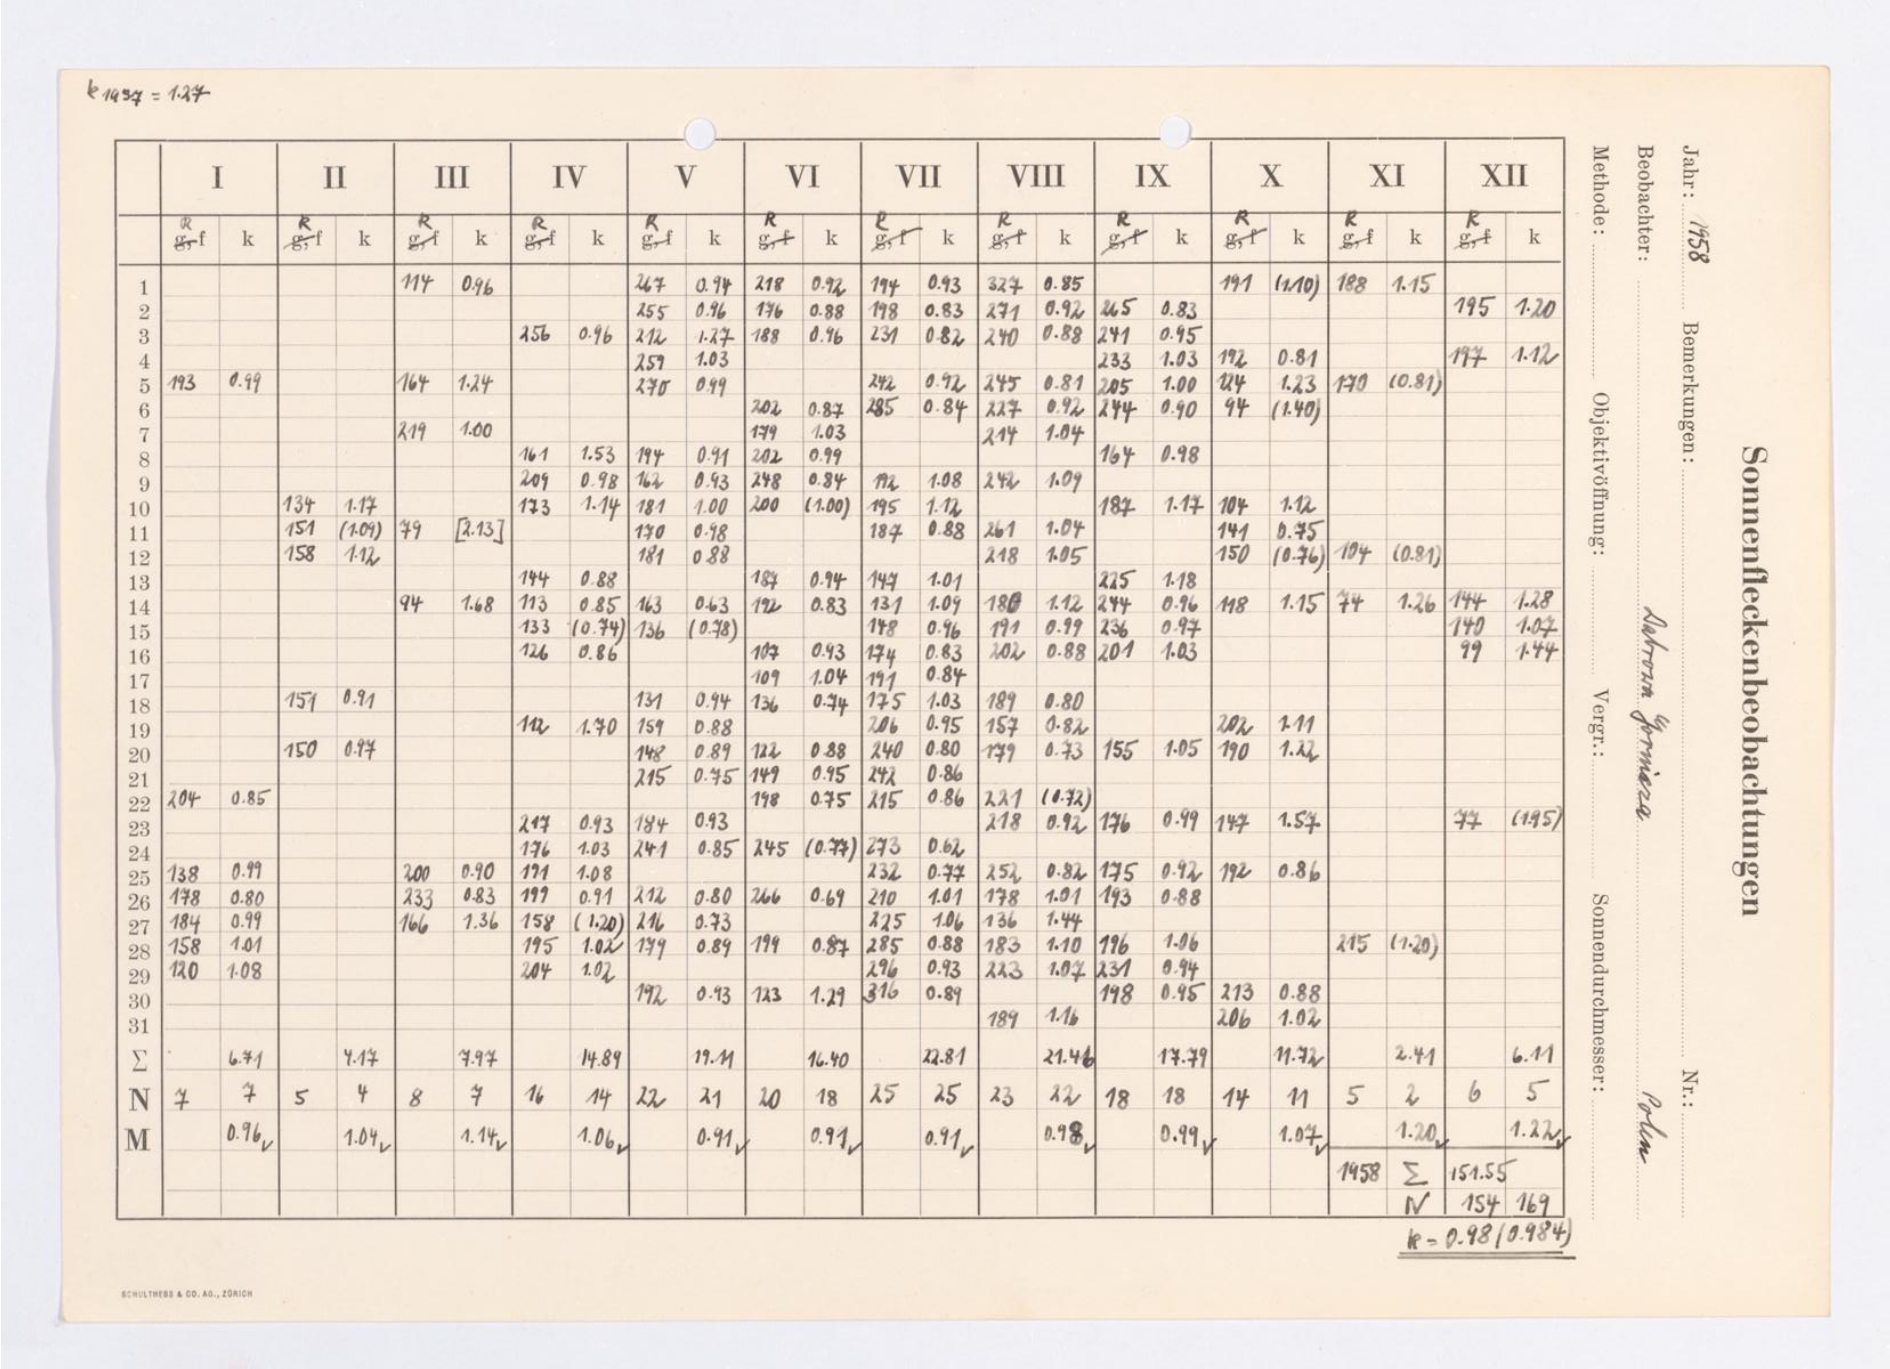 k 1957 = 1.27
I II III IV V VI VII VIII IX X XI XII
R R R R R R R R R R R R
g, f k g, f k g, f k g, f k g, f k g, f k g, f k g, f k g, f k g, f k g, f k g, f k
1 114 0.96 267 0.94 218 0.92 194 0.93 327 0.85 191 (1.10) 188 1.15
2 255 0.96 176 0.88 198 0.83 271 0.92 265 0.83 195 1.20
3 256 0.96 212 1.27 188 0.96 231 0.82 240 0.88 241 0.95
4 259 1.03 233 1.03 192 0.81 197 1.12
5 193 0.99 164 1.24 270 0.99 242 0.92 245 0.81 205 1.00 124 1.23 170 (0.81)
6 202 0.87 285 0.84 227 0.92 244 0.90 94 (1.40)
7 219 1.00 179 1.03 214 1.04
8 161 1.53 194 0.91 202 0.99 164 0.98
9 209 0.98 162 0.93 248 0.84 192 1.08 242 1.09
10 134 1.17 173 1.14 181 1.00 200 (1.00) 195 1.12 187 1.17 104 1.12
11 151 (1.09) 79 [2.13] 170 0.98 187 0.88 261 1.04 141 0.75
12 158 1.12 181 0.88 218 1.05 150 (0.76) 104 (0.81)
13 144 0.88 187 0.94 147 1.01 225 1.18
14 94 1.68 113 0.85 163 0.63 192 0.83 131 1.09 180 1.12 244 0.96 118 1.15 74 1.26 144 1.28
15 133 (0.74) 136 (0.78) 148 0.96 191 0.99 236 0.97 140 1.07
16 126 0.86 107 0.93 174 0.83 202 0.88 201 1.03 99 1.44
17 109 1.04 191 0.84
18 151 0.91 131 0.94 136 0.74 175 1.03 189 0.80
19 112 1.70 159 0.88 206 0.95 157 0.82 202 1.11
20 150 0.97 148 0.89 122 0.88 240 0.80 179 0.73 155 1.05 190 1.22
21 215 0.75 149 0.95 242 0.86
22 204 0.85 198 0.75 215 0.86 221 (0.72)
23 217 0.93 184 0.93 218 0.92 176 0.99 147 1.57 77 (1.95)
24 176 1.03 241 0.85 245 (0.77) 273 0.62
25 138 0.99 200 0.90 191 1.08 232 0.77 252 0.82 175 0.92 192 0.86
26 178 0.80 233 0.83 199 0.91 212 0.80 266 0.69 210 1.01 178 1.01 193 0.88
27 184 0.99 166 1.36 158 (1.20) 216 0.73 225 1.06 136 1.44
28 158 1.01 195 1.02 179 0.89 199 0.87 285 0.88 183 1.10 196 1.06 215 (1.20)
29 120 1.08 204 1.02 296 0.93 223 1.07 231 0.94
30 192 0.93 123 1.29 316 0.89 198 0.95 213 0.88
31 189 1.16 206 1.02
Σ 6.71 4.17 7.97 14.89 19.11 16.40 22.81 21.46 17.79 11.72 2.41 6.11
N 7 7 5 4 8 7 16 14 22 21 20 18 25 25 23 22 18 18 14 11 5 2 6 5
M 0.96 1.04 1.14 1.06 0.91 0.91 0.91 0.98 0.99 1.07 1.20 1.22
1958 Σ 151.55
N 154 169
k = 0.98 (0.984)
SCHULTHESS & CO. AG., ZÜRICH
Sonnenfleckenbeobachtungen
Jahr: 1958 Bemerkungen: Nr.:
Beobachter: Dabrowa Gornicza Polen
Methode: Objektivöffnung: Vergr.: Sonnendurchmesser: